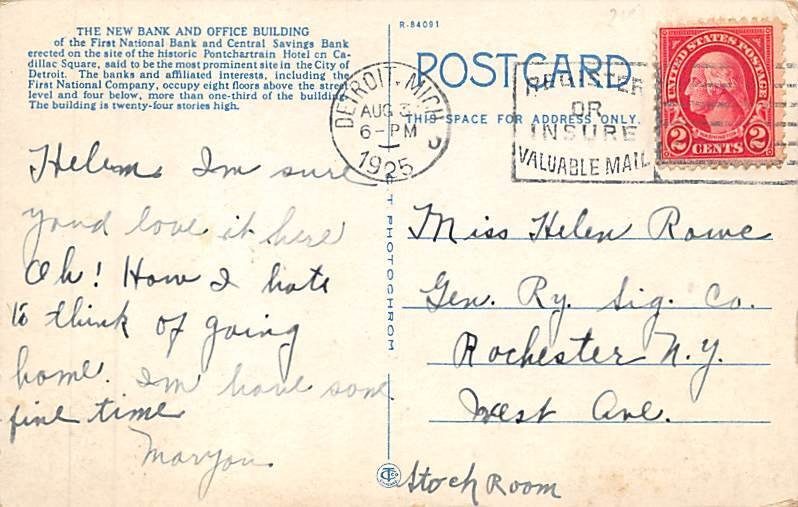 THE NEW BANK AND OFFICE BUILDING
of the First National Bank and Central Savings Bank
erected on the site of the historic Pontchartrain Hotel on Ca-
dillac Square, said to be the most prominent site in the City of
Detroit. The banks and affiliated interests, including the
First National Company, occupy eight floors above the street
level and four below, more than one-third of the building.
The building is twenty-four stories high.
Helen, I'm sure
you'd love it here
Oh! How I hate
to think of going
home. I'm have some
fine time
Maryon
R-84091
POST CARD
THIS SPACE FOR ADDRESS ONLY.
DETROIT, MICH.
AUG 3
6-PM
1925
REGISTER
OR
INSURE
VALUABLE MAIL
UNITED STATES POSTAGE
WASHINGTON
2 CENTS 2
PHOTOCHROM
Miss Helen Rowe
Gen. Ry. Sig. Co.
Rochester N.Y.
West Ave.
Stock Room